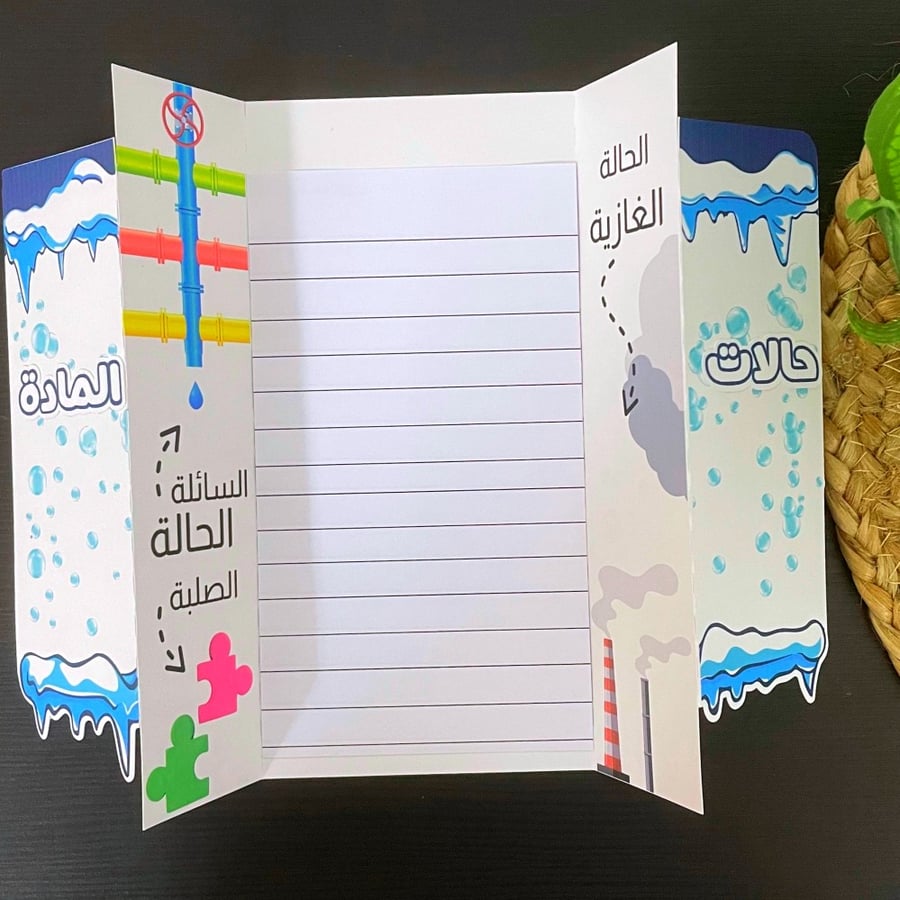 حالات
المادة
الحالة
الغازية
السائلة
الحالة
الصلبة